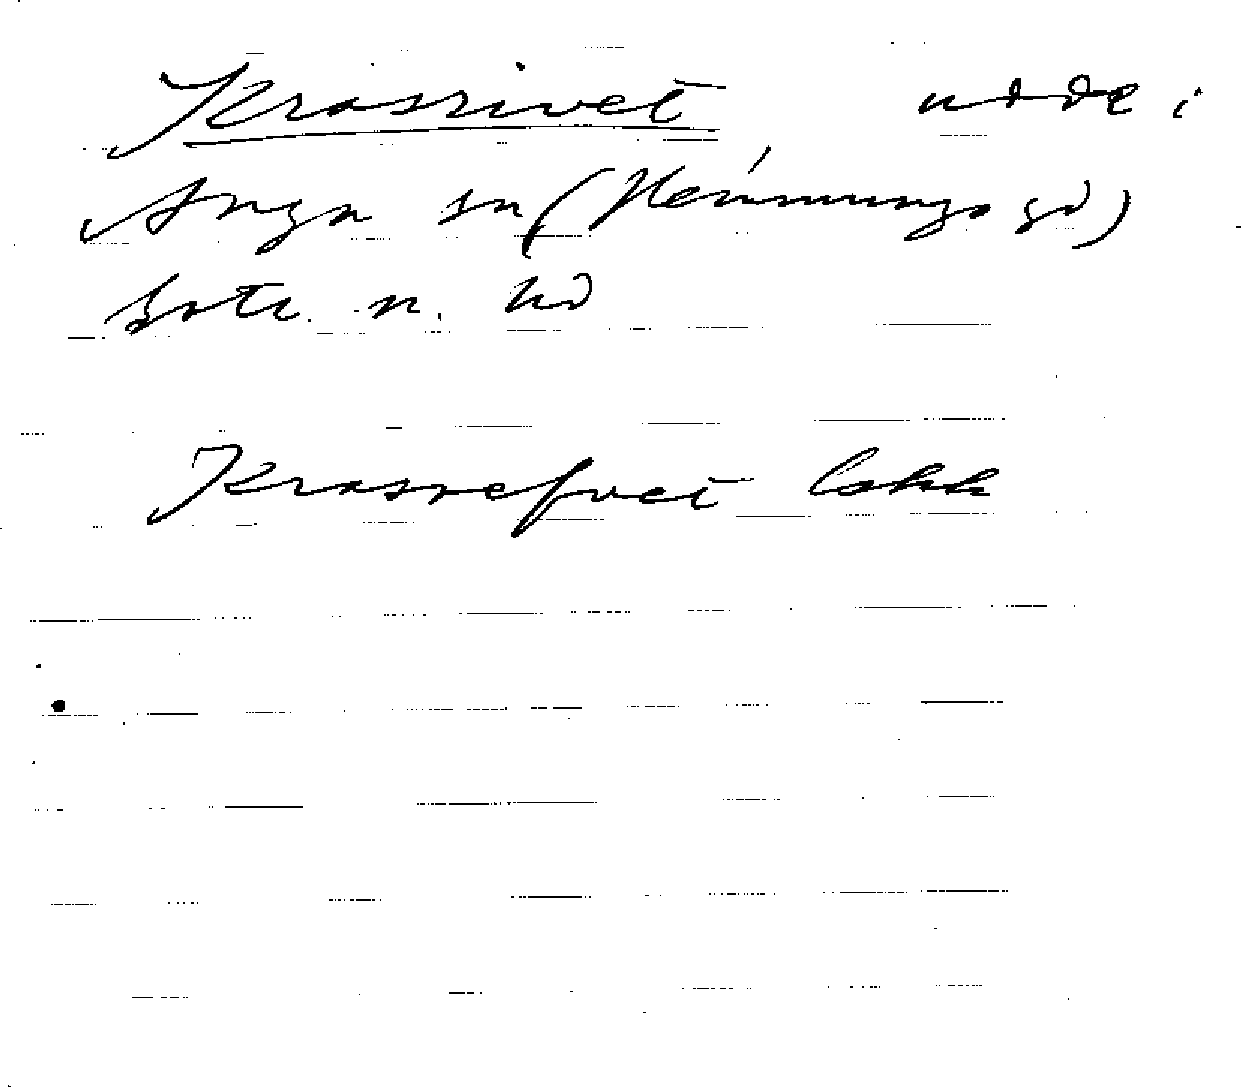 Krasrivet udde i
Anga sn (Hemmungs gd)
Gotl. n. hd
Krasrefvet lokk